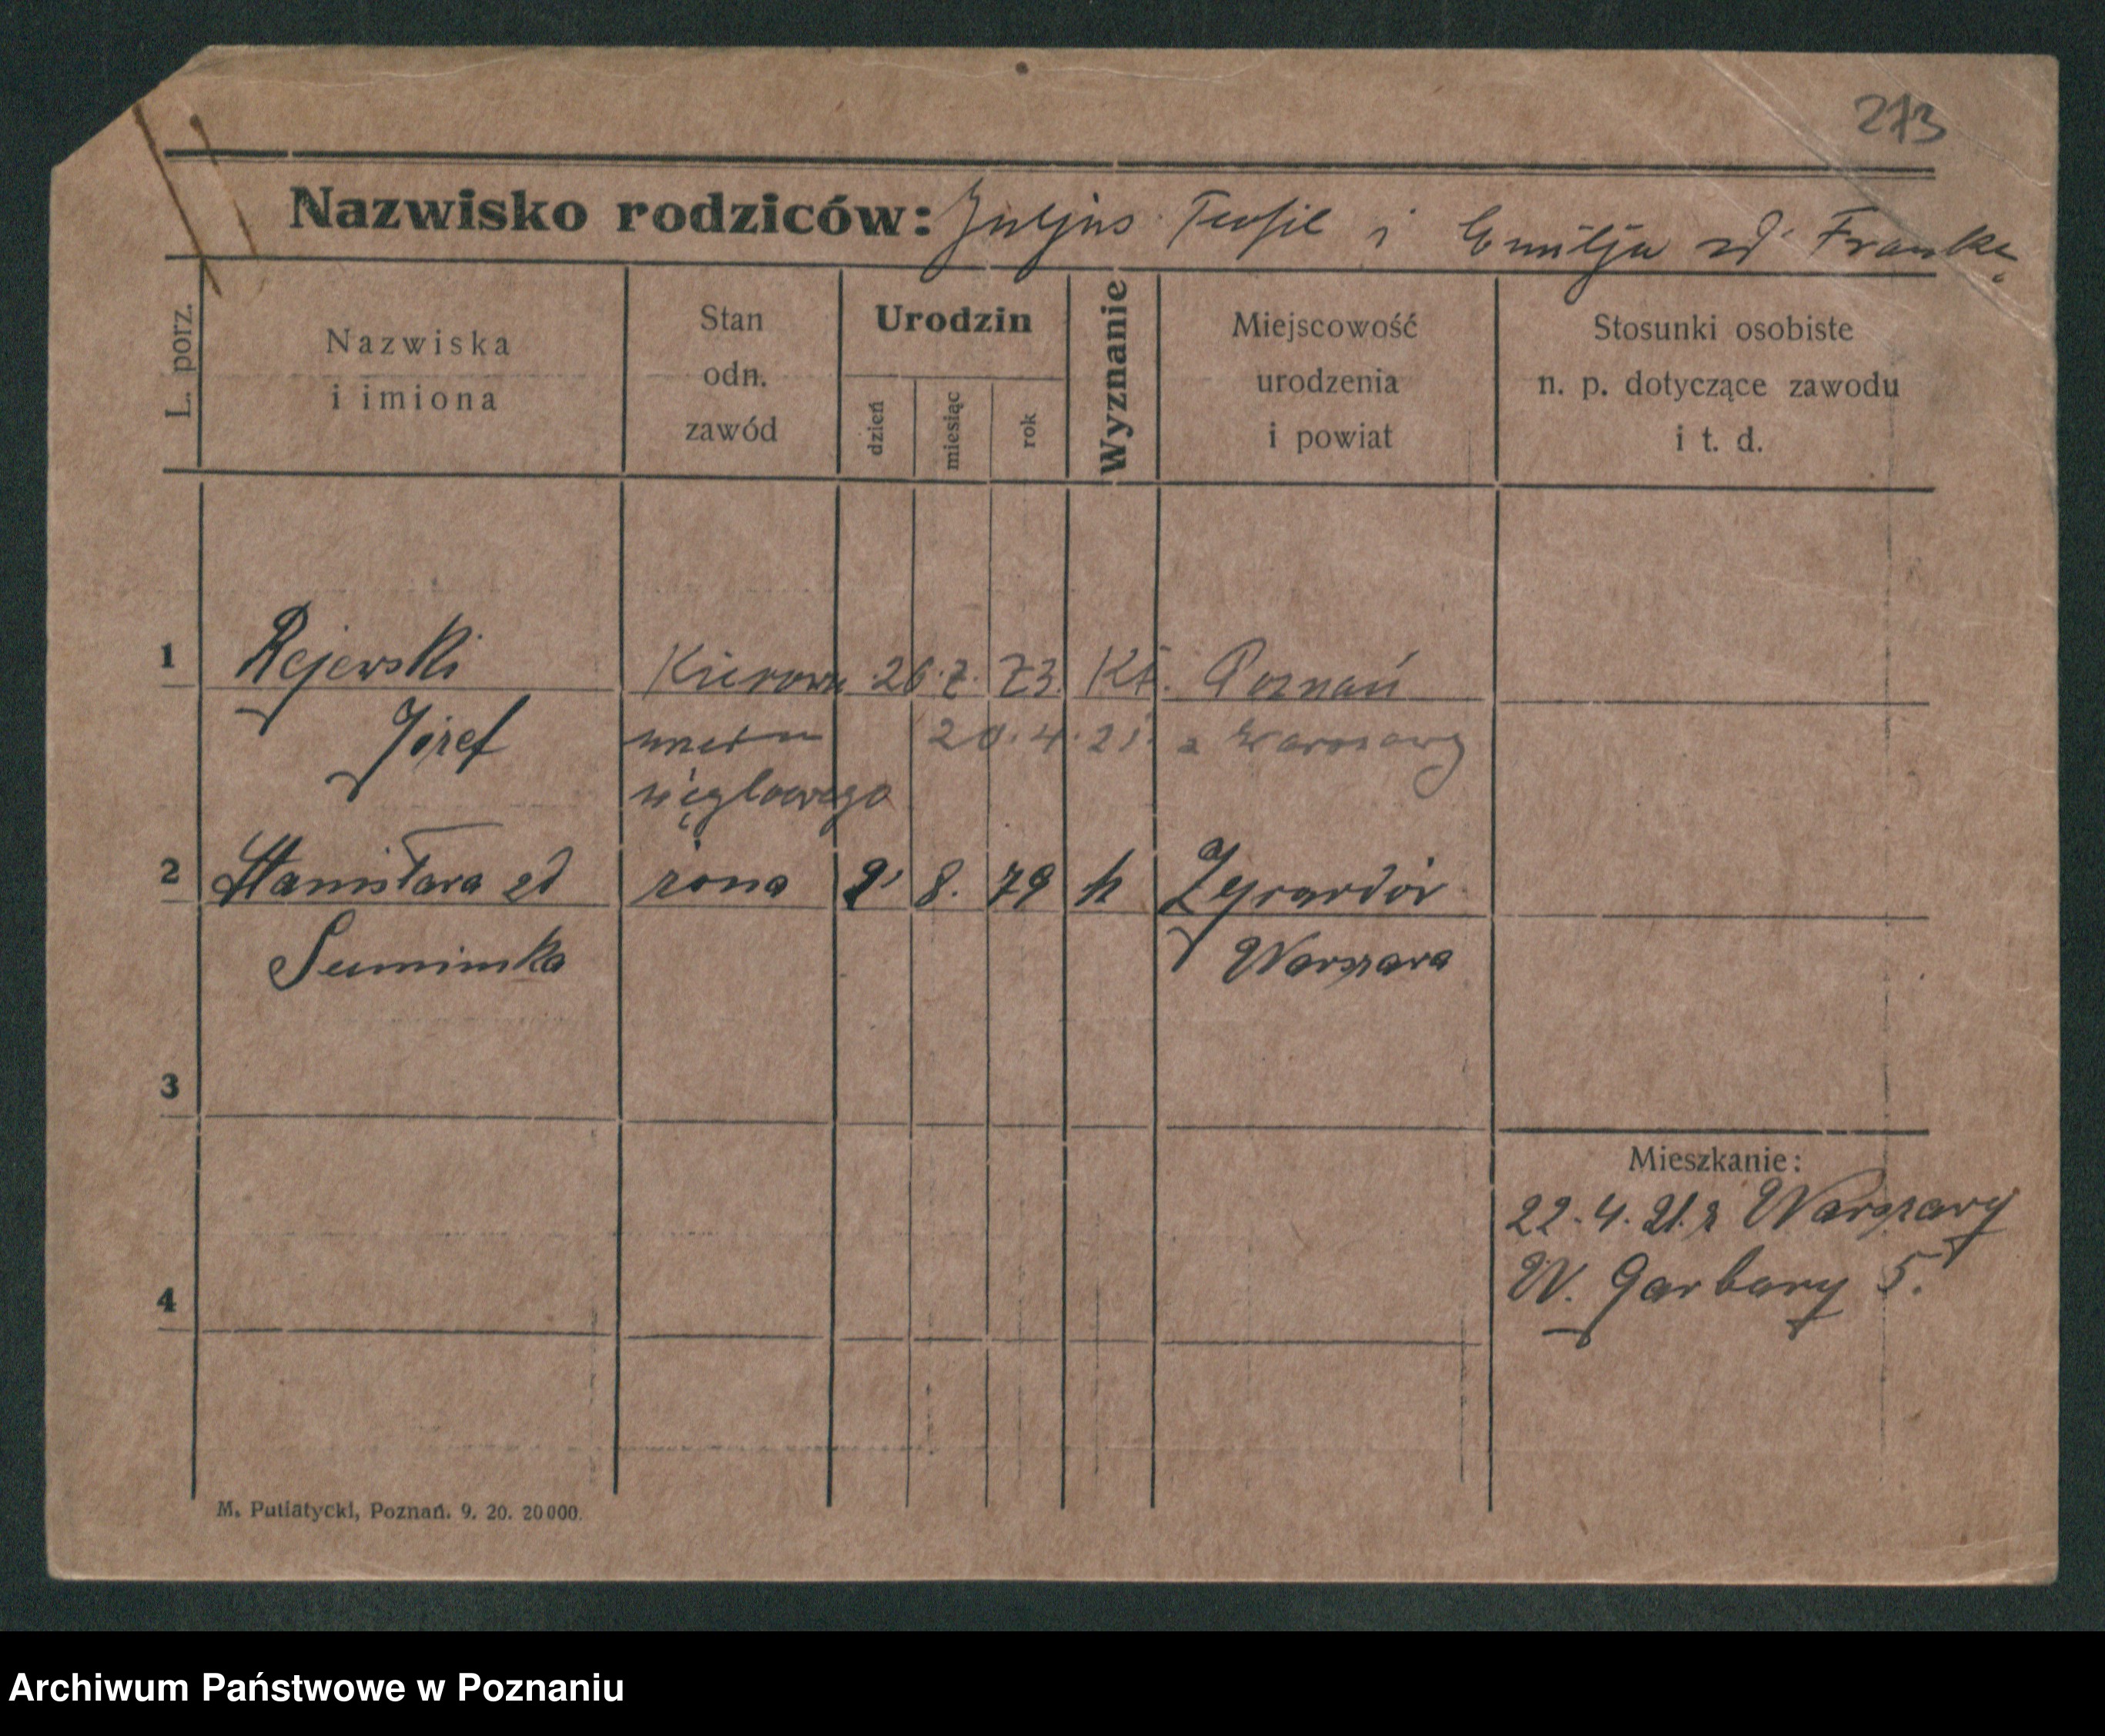 273
Nazwisko rodziców: Juljus Teofil i Emilja zd. Franke
L. porz.
Nazwiska
i imiona
Stan
odn.
zawód
Urodzin
dzień
miesiąc
rok
Wyznanie
Miejscowość
urodzenia
i powiat
Stosunki osobiste
n. p. dotyczące zawodu
i t. d.
1 Rejewski Kierown 26. 7. 73. Kt. Poznań
Józef 20. 4. 21. z Warszawy
węglowego
2 Stanisława zd żona 2 8. 79 k Żyrardów
Sumińska Warszawa
3
Mieszkanie:
22. 4. 21. z Warszawy
4 W. Garbary 5.
M. Putiatycki, Poznań. 9. 20. 20000.
Archiwum Państwowe w Poznaniu